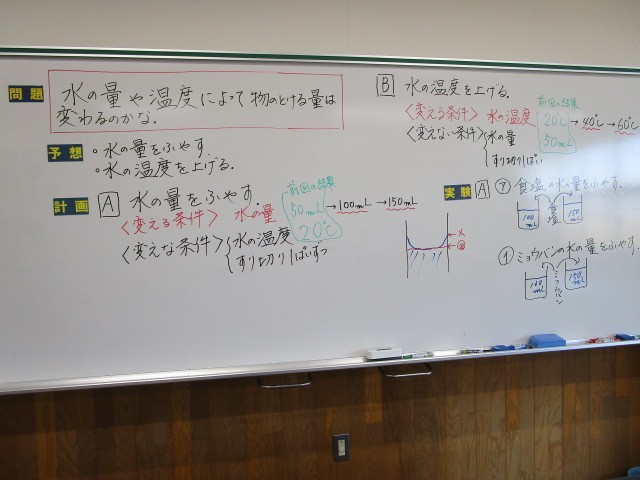 問題
水の量や温度によって物のとける量は
変わるのかな。
予想
・水の量をふやす。
・水の温度を上げる。
計画
A 水の量をふやす。
<変える条件> 水の量
<変えな条件> 水の温度
すり切り1ぱいずつ
前回の結果
50mL → 100mL → 150mL
20℃
B 水の温度を上げる。
<変える条件> 水の温度
<変えない条件> 水の量
すり切り1ぱい
前回の結果
20℃ → 40℃ → 60℃
50mL
実験 A
㋐ 食塩の水の量をふやす。
100mL
150mL
食塩
㋑ ミョウバンの水の量をふやす。
100mL
150mL
ミョウバン